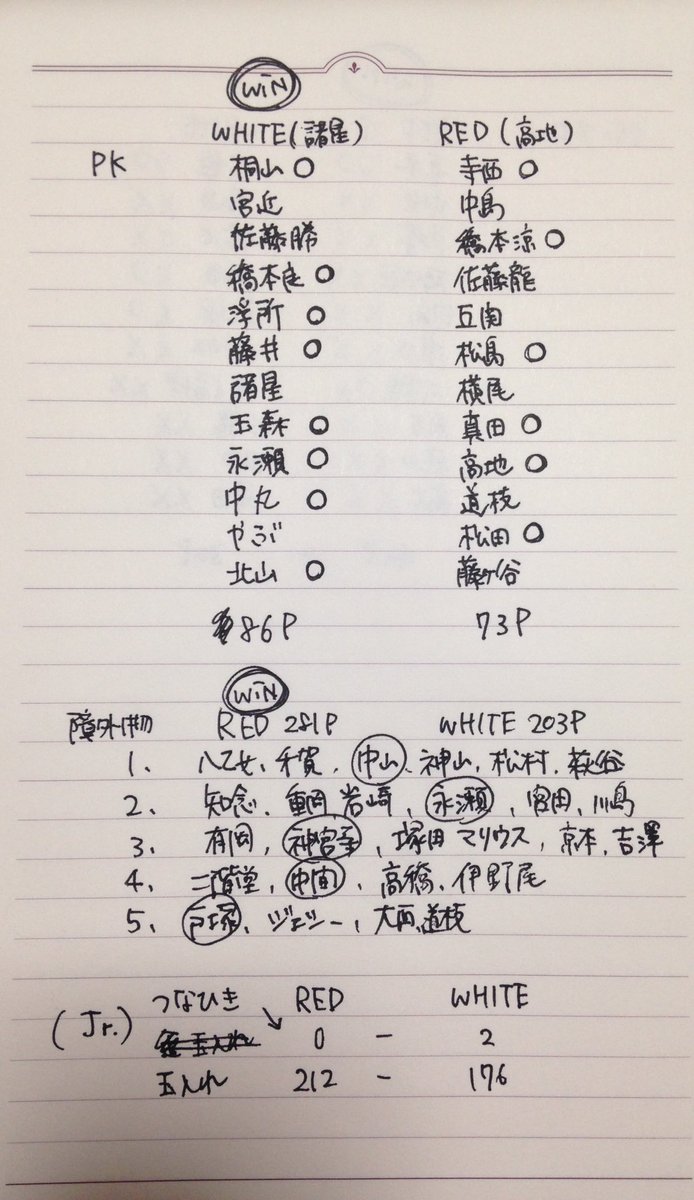 WIN
WHITE(諸星) RED(高地)
PK 桐山○ 寺西○
宮近 中島
佐藤勝 橋本涼○
橋本良○ 佐藤龍
浮所○ 五関
藤井○ 松島○
諸星 横尾
玉森○ 真田○
永瀬○ 高地○
中丸○ 道枝
やぶ 松田○
北山○ 藤ヶ谷
86P 73P
WIN
障外物 RED 281P WHITE 203P
1. 八乙女、千賀、中山、神山、松村、萩谷
2. 知念、重岡、岩崎、永瀬、宮田、川島
3. 有岡、神宮寺、塚田、マリウス、京本、吉澤
4. 二階堂、中間、高橋、伊野尾
5、戸塚、ジェシー、大西、道枝
(Jr.) つなひき RED WHITE
0 - 2
玉入れ 212 - 176